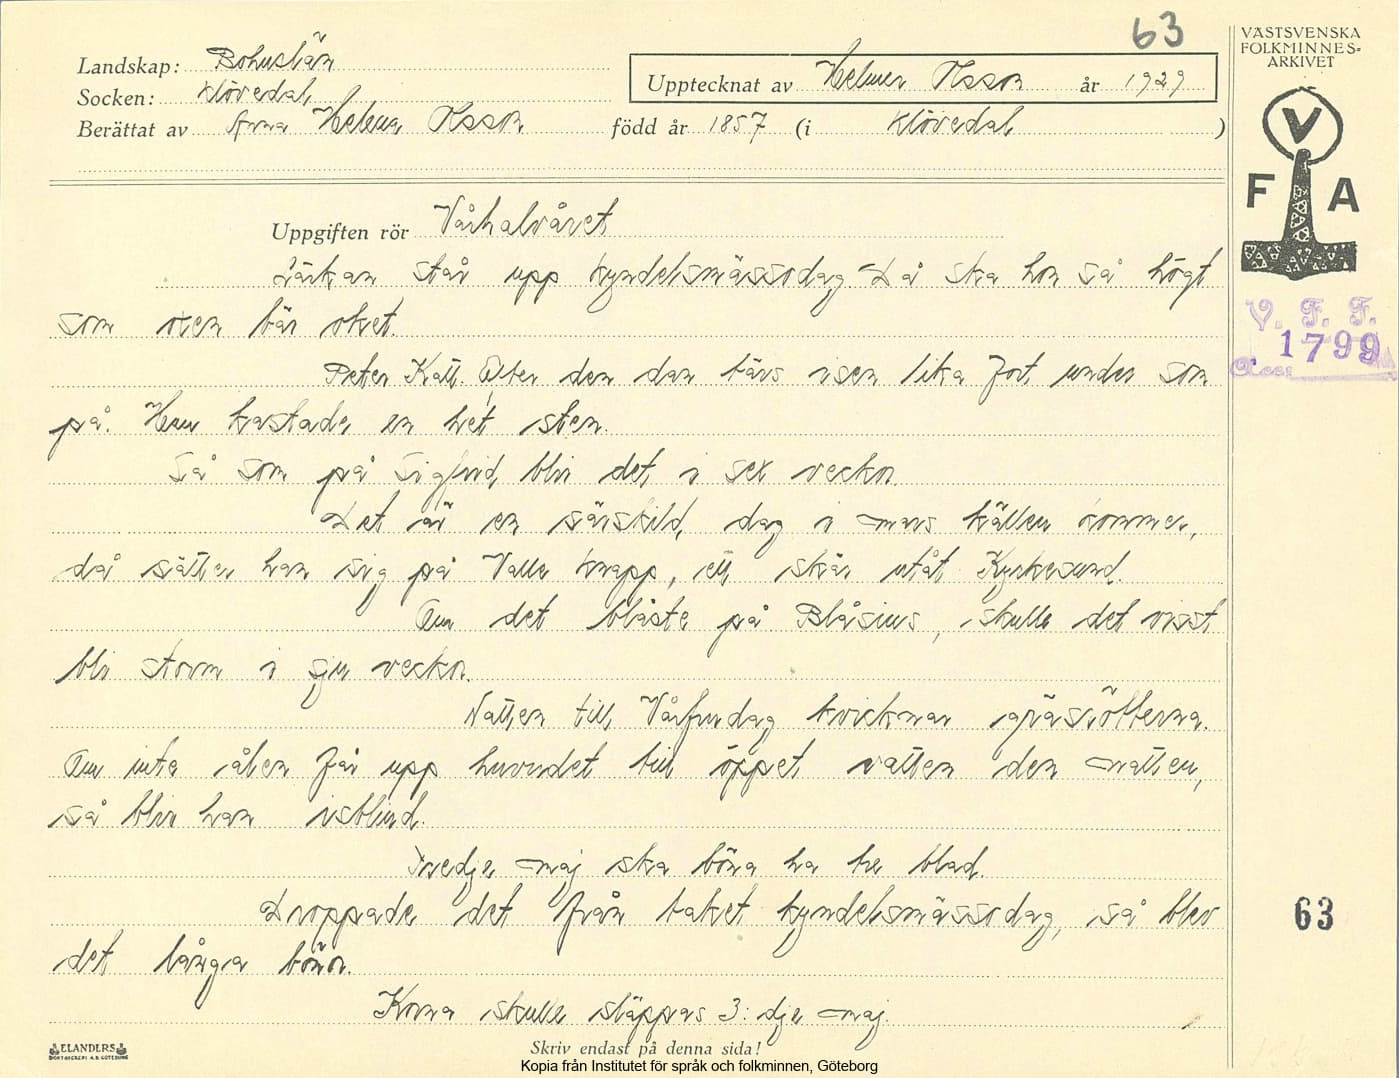 63
VÄSTSVENSKA
FOLKMINNES-
ARKIVET
Landskap: Bohuslän
Socken: Klövedal
Upptecknat av Helmer Olsson år 1929
Berättat av Anna Helena Olsson född år 1857 (i Klövedal)
V
F A
V. F. F.
1799
Acc.
Uppgiften rör Vårhalvåret
Lärkan står upp kyndelsmässodag. Då ska hon så högt
som oxen bär oket.
Peter Katt. Efter den dan tärs isen lika fort under som
på. Han kastade en het sten.
Så som på Sigfrid, blir det i sex veckor.
Det är en särskild dag i mars källen kommer,
då sätter han sig på Valle knapp, å skär utåt Kyrkesund.
Om det blåste på Blåsius, skulle det visst
bli storm i sju veckor.
Natten till Vårfrudag kvicknar gräsrötterna.
Om inte ålen får upp huvudet till öppet vatten den natten,
så blir han isblind.
Tredje maj ska böna ha tre blad.
Droppade det från taket kyndelsmässodag, så blev
det långa bönor.
Korna skulle släppas 3:dje maj.
63
ELANDERS
BOKTRYCKERI A.B. GÖTEBORG
Skriv endast på denna sida!
Kopia från Institutet för språk och folkminnen, Göteborg